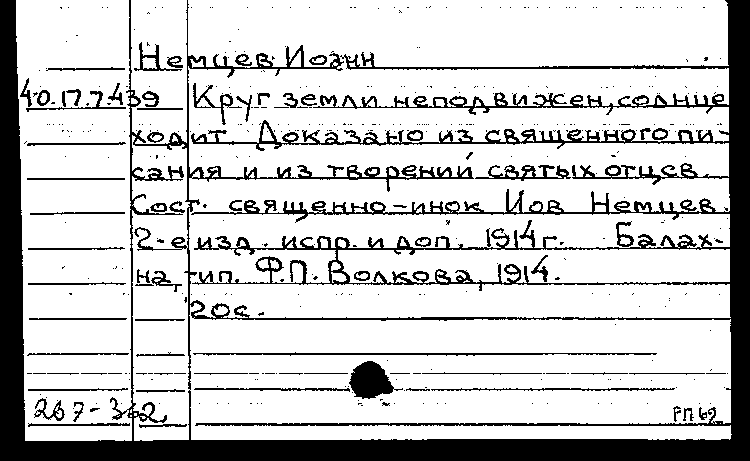 Немцев, Иоанн
40.17.7.439 Круг земли неподвижен, солнце
ходит. Доказано из священного пи-
сания и из творений святых отцев.
Сост. священно-инок Иов Немцев.
2-е изд. испр. и доп. 1914 г. Балах-
на, тип. Ф.П. Волкова, 1914.
20с.
267-362
РП 69